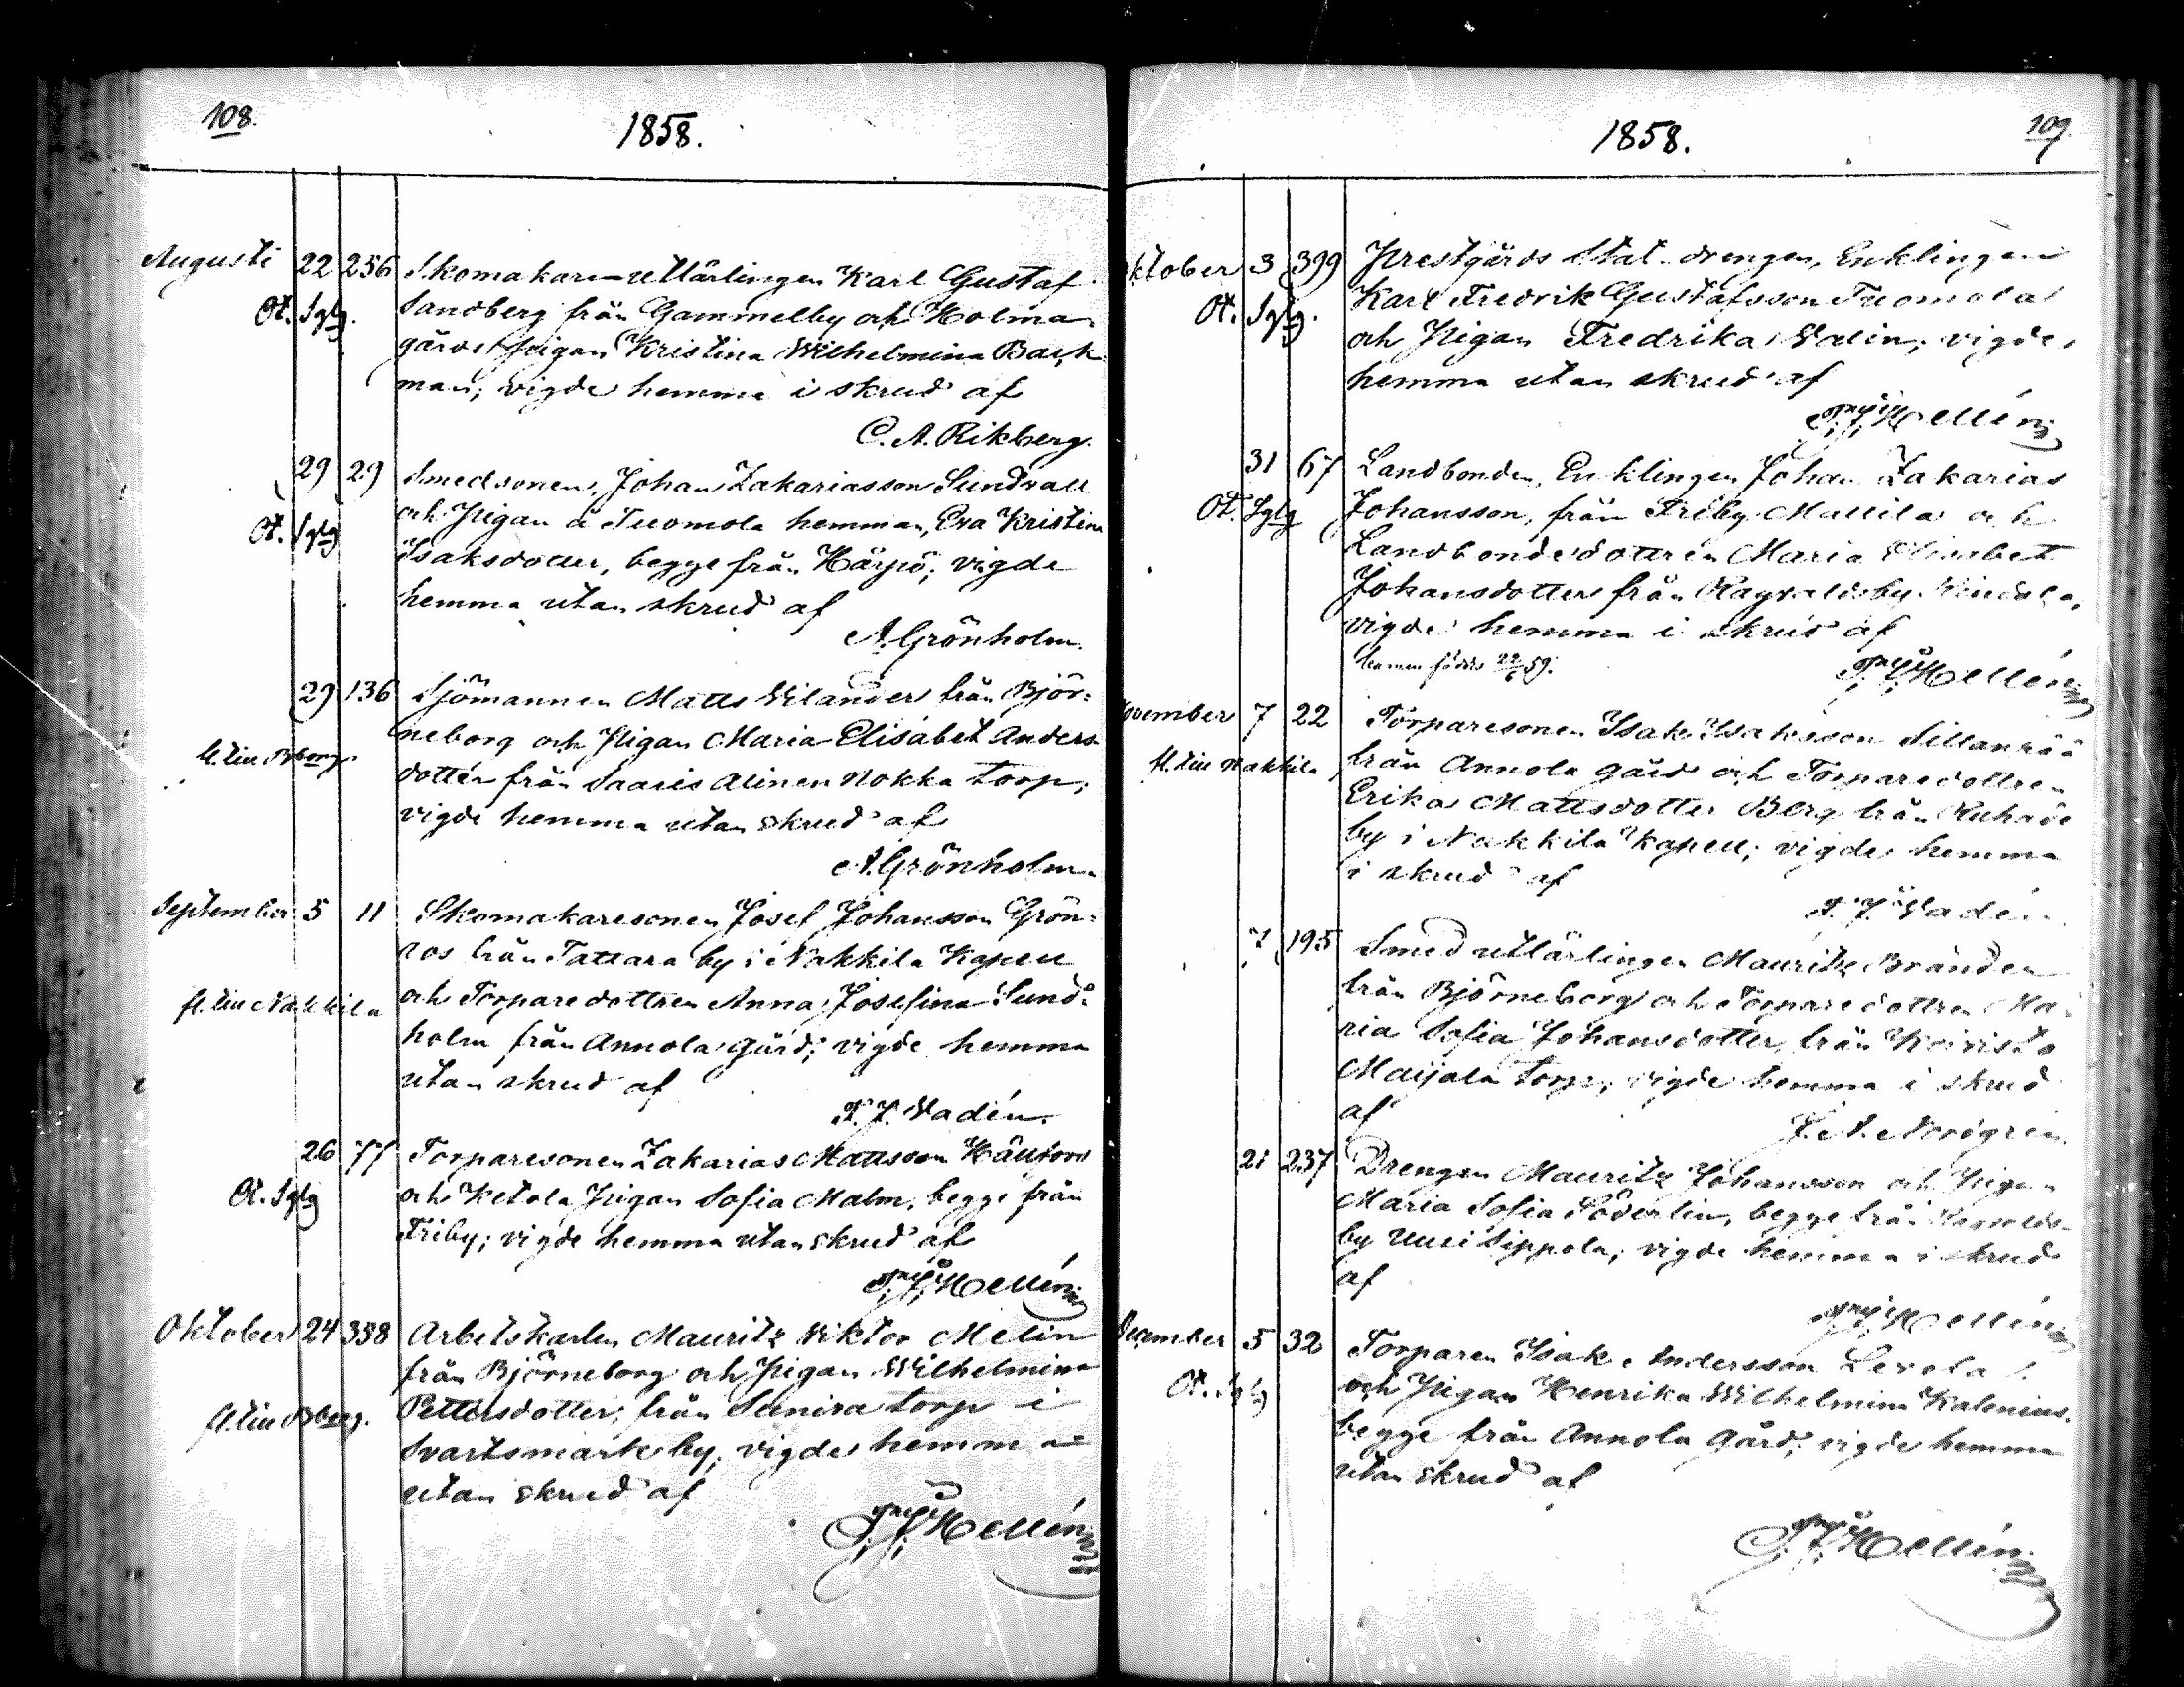 108.
1858.
Augusti 22 256 Skomakare-utlärlingen Karl Gustaf
Ot. Sglg. Sandberg från Gammelby och Holma
gårds Pigan Kristina Wilhelmina Back
man; vigde hemma i skrud af
C. A. Rikberg.
29 29 Smedsonen, Johan Zakariasson Sundvall
Ot. Sglg och Pigan å Tuomola hemman, Eva Kristina
Isaksdotter, begge från Härpö; vigde
hemma utan skrud af
A. Grönholm.
29 136 Sjömannen Matts Vilander från Björ-
neborg och Pigan Maria Elisabet Anders-
fl. till Bborg. dotter från Saaris Alinen Nokka torp;
vigde hemma utan skrud af
A. Grönholm.
September 5 11 Skomakaresonen Josef Johansson Grön-
ros från Tattara by i Nakkila Kapell
fl. till Nakkila och Torparedottren Anna Josefina Sund-
holm från Annola Gård; vigde hemma
utan skrud af
Vadén.
26 77 Torparesonen Zakarias Mattsson
Ot. Sglg och Ketola Pigan Sofia Malm, begge från
Friby; vigde hemma utan skrud af
Hellén
Oktober 24 338 Arbetskarlen Mauritz Viktor Melin
från Björneborg och Pigan Wilhelmina
fl. till Bborg. Pettersdotter, från Sunira torp i
Svartsmark by; vigde hemma
utan skrud af
Hellén
1858.
109.
ktober 3 399 Prestgårds Stat-drengen, Enklingen
Ot. Sglg. Karl Fredrik Gustafsson Tuomola
och Pigan Fredrika Valin; vigde,
hemma utan skrud af
Hellén
31 67 Landbonden, Enklingen Johan Zakarias
Ot. Sglg Johansson, från Friby Mattila och
Landbondedottren Maria Elisabet
Johansdotter från Ragvaldsby
vigde hemma i skrud af
Hellén
ovember 7 22 Torparesonen Isak Isaksson Sillanpää
fl. till Nakkila från Annola gård och Torparedottren
Erika Mattsdotter Berg från Ruhade
by i Nakkila Kapell; vigde hemma
i skrud af
Vadén
7 195 Smedutlärlingen Mauritz Brander
från Björneborg och Torparedottren Ma-
ria Sofia Johansdotter, från Koivisto
Maijala torp; vigde hemma i skrud
af
Nordgren
21 237 Drengen Mauritz Johansson och Pigan
Maria Sofia Söderlin, begge från Ragvalds-
by Uusi Sippola; vigde hemma i skrud
af
Hellén
december 5 32 Torparen Isak Andersson Levola
Ot. Sglg och Pigan Henrika Wilhelmina Kalenius,
begge från Annola Gård; vigde hemma
utan skrud af
Hellén